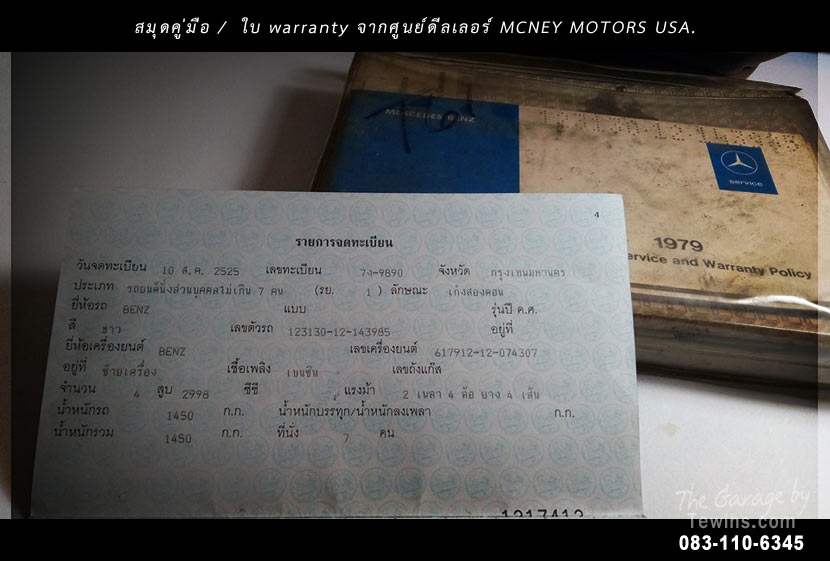 สมุดคู่มือ / ใบ warranty จากศูนย์ดีลเลอร์ MCNEY MOTORS USA.
MERCEDES-BENZ
service
1979
ervice and Warranty Policy
4
รายการจดทะเบียน
วันจดทะเบียน 10 ส.ค. 2525 เลขทะเบียน 7ง-9890 จังหวัด กรุงเทพมหานคร
ประเภท รถยนต์นั่งส่วนบุคคลไม่เกิน 7 คน (รย. 1 ) ลักษณะ เก๋งสองตอน
ยี่ห้อรถ BENZ แบบ รุ่นปี ค.ศ.
สี ขาว เลขตัวรถ 123130-12-143985 อยู่ที่
ยี่ห้อเครื่องยนต์ BENZ เลขเครื่องยนต์ 617912-12-074307
อยู่ที่ ซ้ายเครื่อง เชื้อเพลิง เบนซิน เลขถังแก๊ส
จำนวน 4 สูบ 2998 ซีซี แรงม้า 2 เพลา 4 ล้อ ยาง 4 เส้น
น้ำหนักรถ 1450 ก.ก. น้ำหนักบรรทุก/น้ำหนักลงเพลา ก.ก.
น้ำหนักรวม 1450 ก.ก. ที่นั่ง 7 คน
The Garage by
Tewins.com
083-110-6345